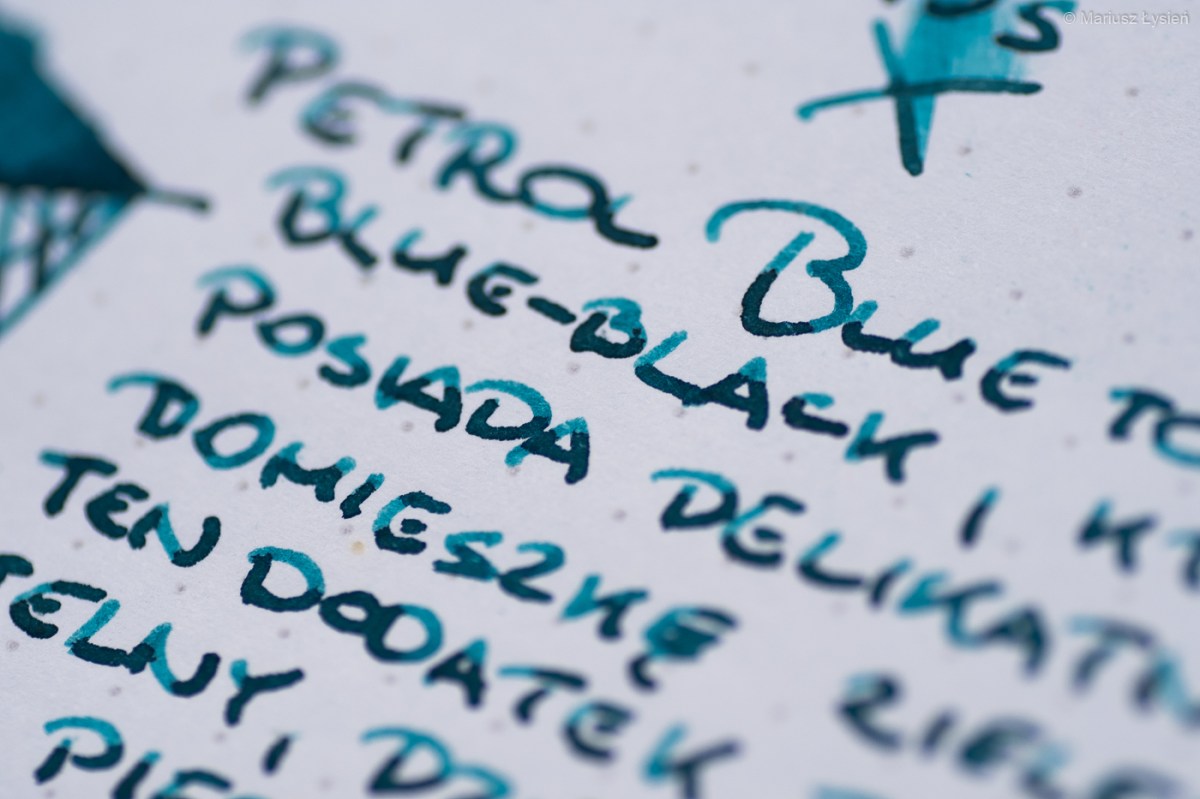 © Mariusz Łysień
PETROL BLUE TO
BLUE-BLACK I
POSIADA DELIKATN
DOMIESZKĘ ZIELE
TEN DODATEK
TELNY,